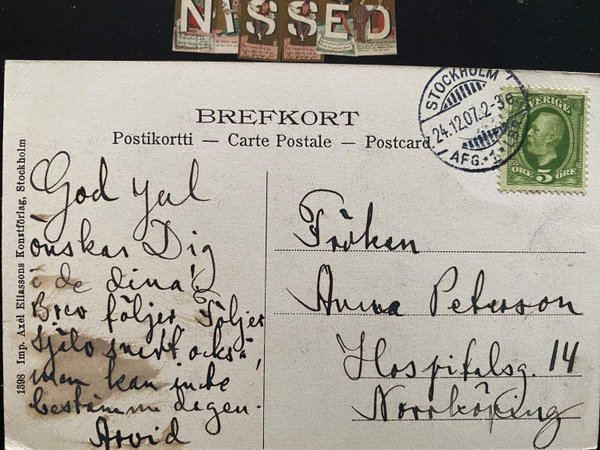 NISSED
BREFKORT
Postikortti — Carte Postale — Postcard.
STOCKHOLM 1
24.12.07. 2-3e
AFG.-1
SVERIGE
ÖRE 5 ÖRE
1398 Imp. Axel Eliassons Konstförlag, Stockholm
God jul
önskar Dig
i de dina!
Brev följer. Följer
själv snart också,
man kan inte
bestämma dagen.
Arvid
Fröken
Anna Peterson
Hospitalsg. 14
Norrköping